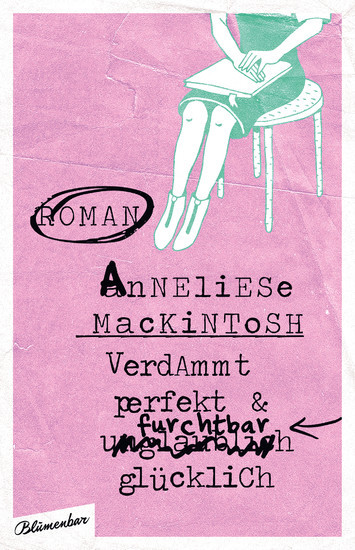 ROMAN
AnNELiESe
MacKiNToSH
VerdAmmt
perfekt &
furchtbar
unglaublich
glückliCh
Blumenbar